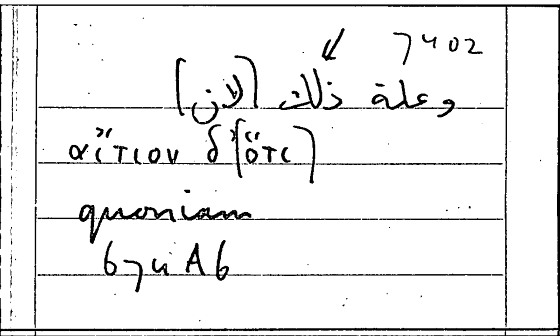 7402
وعلة ذلك (لان)
αἴτιον δ(ὅτι)
quoniam
674 A6